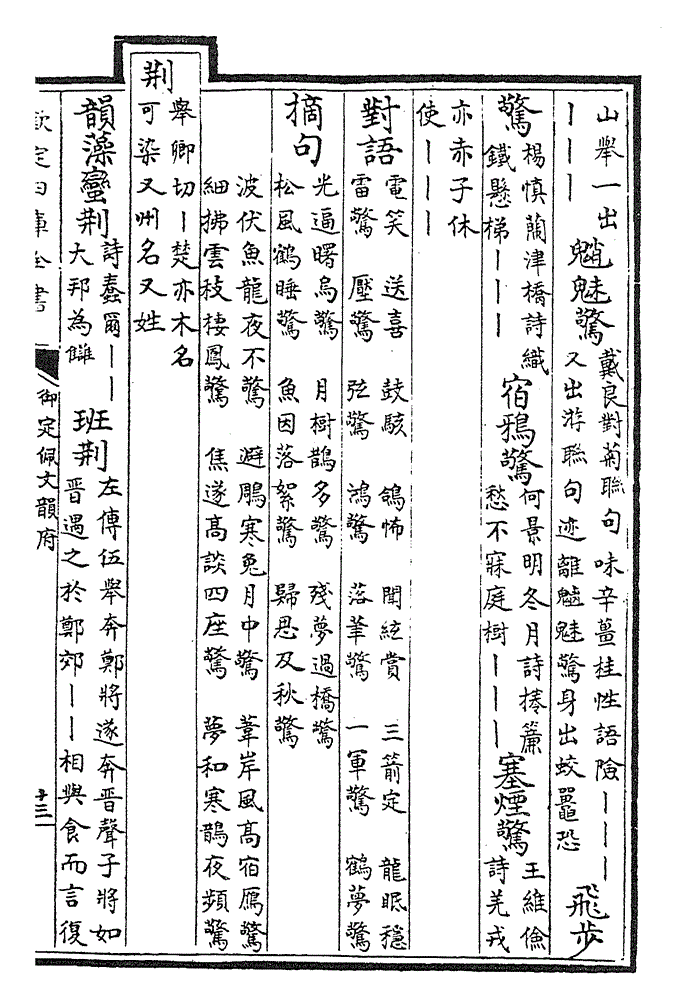 山舉一出
｜｜｜
魑魅驚
戴良對菊聯句味辛薑桂性語險｜｜｜
又出游聯句迹離魑魅驚身出蛟鼉恐
飛步
驚
楊慎蘭津橋詩織
鐵懸梯｜｜｜
宿鴉驚
何景明冬月詩捲簾
愁不寐庭樹｜｜｜
塞煙驚
王維儉
詩羌戎
亦赤子休
使｜｜｜
對語
電笑 送喜 鼓駭 鴿怖 聞絃賞 三箭定 龍眠穩
雷驚 壓驚 弦驚 鴻驚 落筆驚 一軍驚 鶴夢驚
摘句
光逼曙烏驚 月樹鵲多驚 殘夢過橋驚
松風鶴睡驚 魚因落絮驚 歸思及秋驚
波伏魚龍夜不驚 避鵰寒兔月中驚 葦岸風高宿鴈驚
細拂雲枝棲鳳驚 焦遂高談四座驚 夢和寒鵲夜頻驚
荆
舉卿切｜楚亦木名
可染又州名又姓
韻藻
蠻荆
詩蠢爾｜｜
大邦為讎
班荆
左傳伍舉奔鄭將遂奔晉聲子將如
晉遇之於鄭郊｜｜相與食而言復
欽定四庫全書
御定佩文韻府
十三